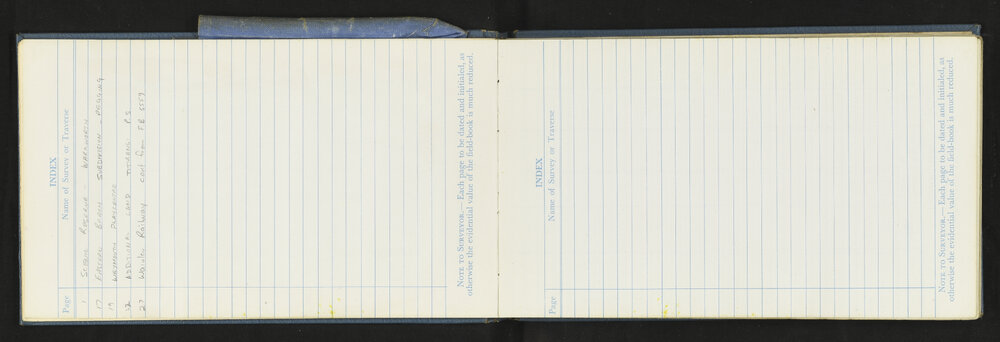 INDEX
Page Name of Survey or Traverse
1 Scenic Reserve - Warkworth
17 Eastern Beach Subdivision - Pegging
19 Weymouth
22 Additional Land P.S
27 Railway cont from FB 6559
NOTE TO SURVEYOR.— Each page to be dated and initialed, as
otherwise the evidential value of the field-book is much reduced.
INDEX
Page Name of Survey or Traverse
NOTE TO SURVEYOR.— Each page to be dated and initialed, as
otherwise the evidential value of the field-book is much reduced.